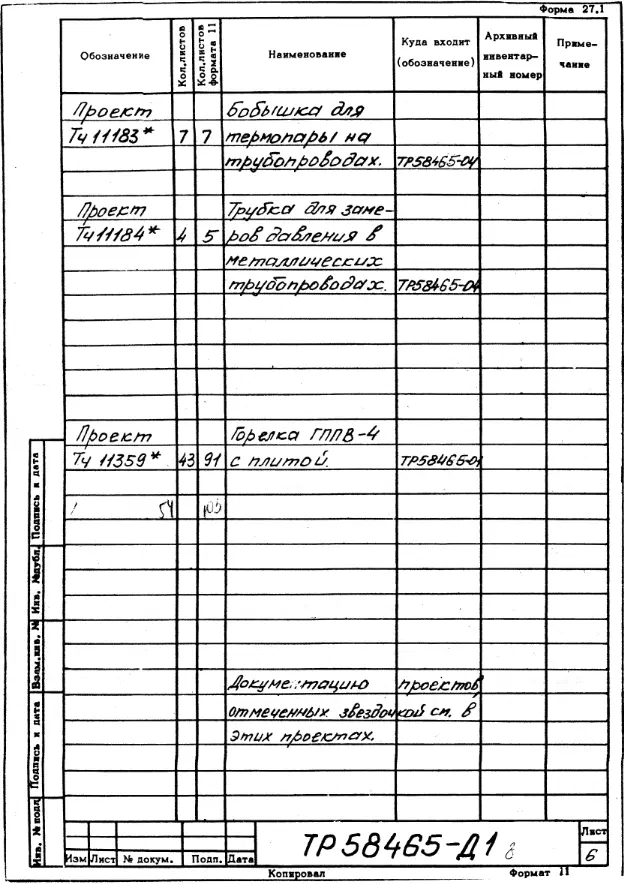 Форма 27.1
Обозначение Кол.листов Кол.листов формата 11 Наименование Куда входит (обозначение) Архивный инвентарный номер Примечание
Проект Бобышка для
Тч 11183* 7 7 термопары на
трубопроводах. ТР58465-04
Проект Трубка для заме-
Тч11184* 4 5 ров давления в
металлических
трубопроводах. ТР58465-04
Проект Горелка ГППВ-4
Тч 11359* 43 91 с плитой. ТР58465-01
54
Документацию проектов,
отмеченных звездочкой см. в
этих проектах.
Подпись и дата
Инв. №дубл.
Взам.инв. №
Подпись и дата
Инв. №подл
Изм Лист № докум. Подп. Дата
ТР58465-Д1
Лист
6
Копировал Формат 11